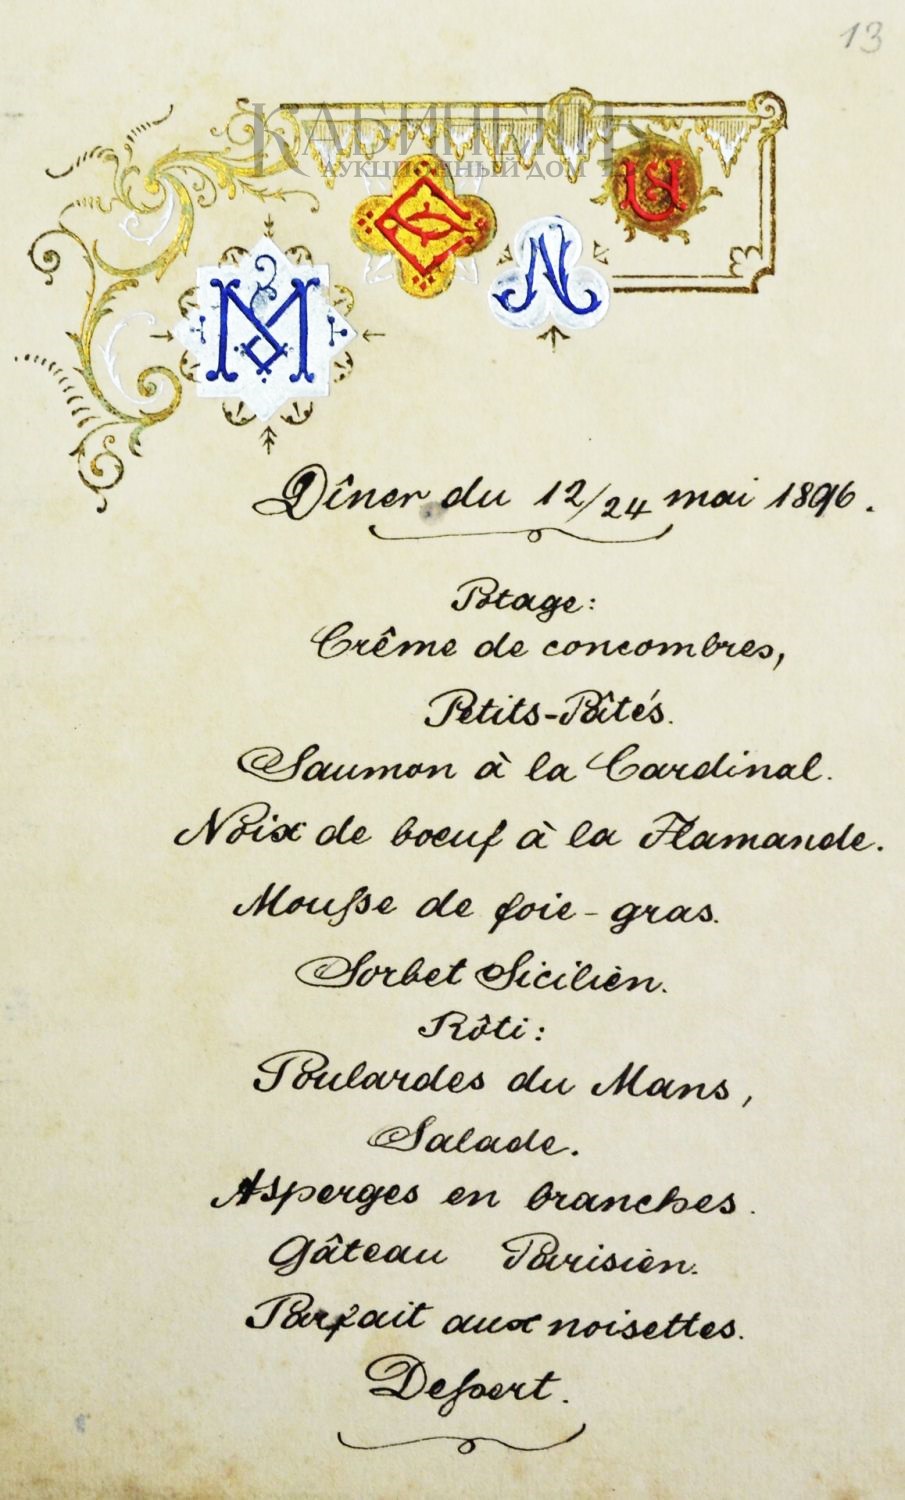 13
КАБИНЕТЪ
АУКЦИОННЫЙ ДОМ
M E N U
Dîner du 12/24 mai 1896.
Potage:
Crême de concombres,
Petits-Pâtés.
Saumon à la Cardinal.
Noix de boeuf à la Flamande.
Mousse de foie-gras.
Sorbet Sicilien.
Rôti:
Poulardes du Mans,
Salade.
Asperges en branches.
Gâteau Parisien.
Parfait aux noisettes.
Dessert.